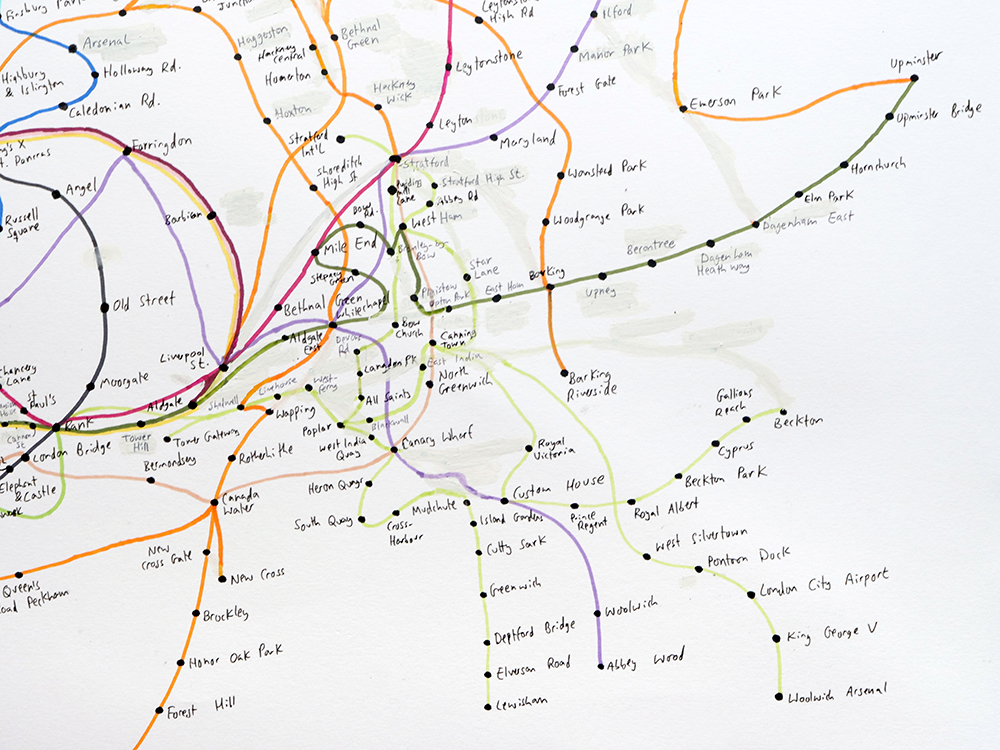 Finsbury Park
Junction
Leytonstone
High Rd
Ilford
Arsenal
Haggerston
Bethnal
Green
Hackney
Central
Manor Park
Upminster
Highbury
& Islington
Holloway Rd.
Homerton
Leytonstone
Forest Gate
Caledonian Rd.
Hoxton
Hackney
Wick
Emerson Park
Upminster Bridge
Leyton
g's X
t. Pancras
Farringdon
Stratford
Int'l
Maryland
Stratford
Hornchurch
Angel
Shoreditch
High St
Pudding
Mill
Lane
Stratford High St.
Wanstead Park
Abbey Rd
Elm Park
Russell
Square
Barbican
Bow
Rd.
West Ham
Woodgrange Park
Dagenham East
Mile End
Bromley-by-
Bow
Becontree
Dagenham
Heathway
Stepney
Green
Star
Lane
Barking
Old Street
Plaistow
Upton Park
East Ham
Upney
Bethnal Green
Whitechapel
Bow
Church
Aldgate
East
Devons
Rd
Canning
Town
Liverpool
St.
East India
Chancery
Lane
Moorgate
Langdon Pk.
North
Greenwich
Barking
Riverside
St
Paul's
Limehouse
West-
ferry
Aldgate
Shadwell
All Saints
Gallions
Reach
Bank
Wapping
Beckton
Cannon
St
Tower
Hill
Tower Gateway
Poplar
Blackwall
Cyprus
London Bridge
West India
Quay
Canary Wharf
Royal
Victoria
Bermondsey
Rotherhithe
Beckton Park
Elephant
& Castle
Heron Quays
Custom House
Canada
Water
South Quay
Cross-
Harbour
Mudchute
Island Gardens
Prince
Regent
Royal Albert
New
Cross Gate
Cutty Sark
West Silvertown
Pontoon Dock
New Cross
Queen's
oad Peckham
Greenwich
London City Airport
Brockley
Woolwich
Deptford Bridge
King George V
Honor Oak Park
Elverson Road
Abbey Wood
Forest Hill
Lewisham
Woolwich Arsenal